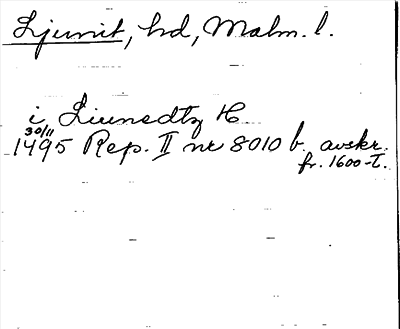 Ljunit, hd, Malm. l.
i Liunedtz H
30/11
1495 Rep. II nr 8010 b. avskr.
fr. 1600-T.